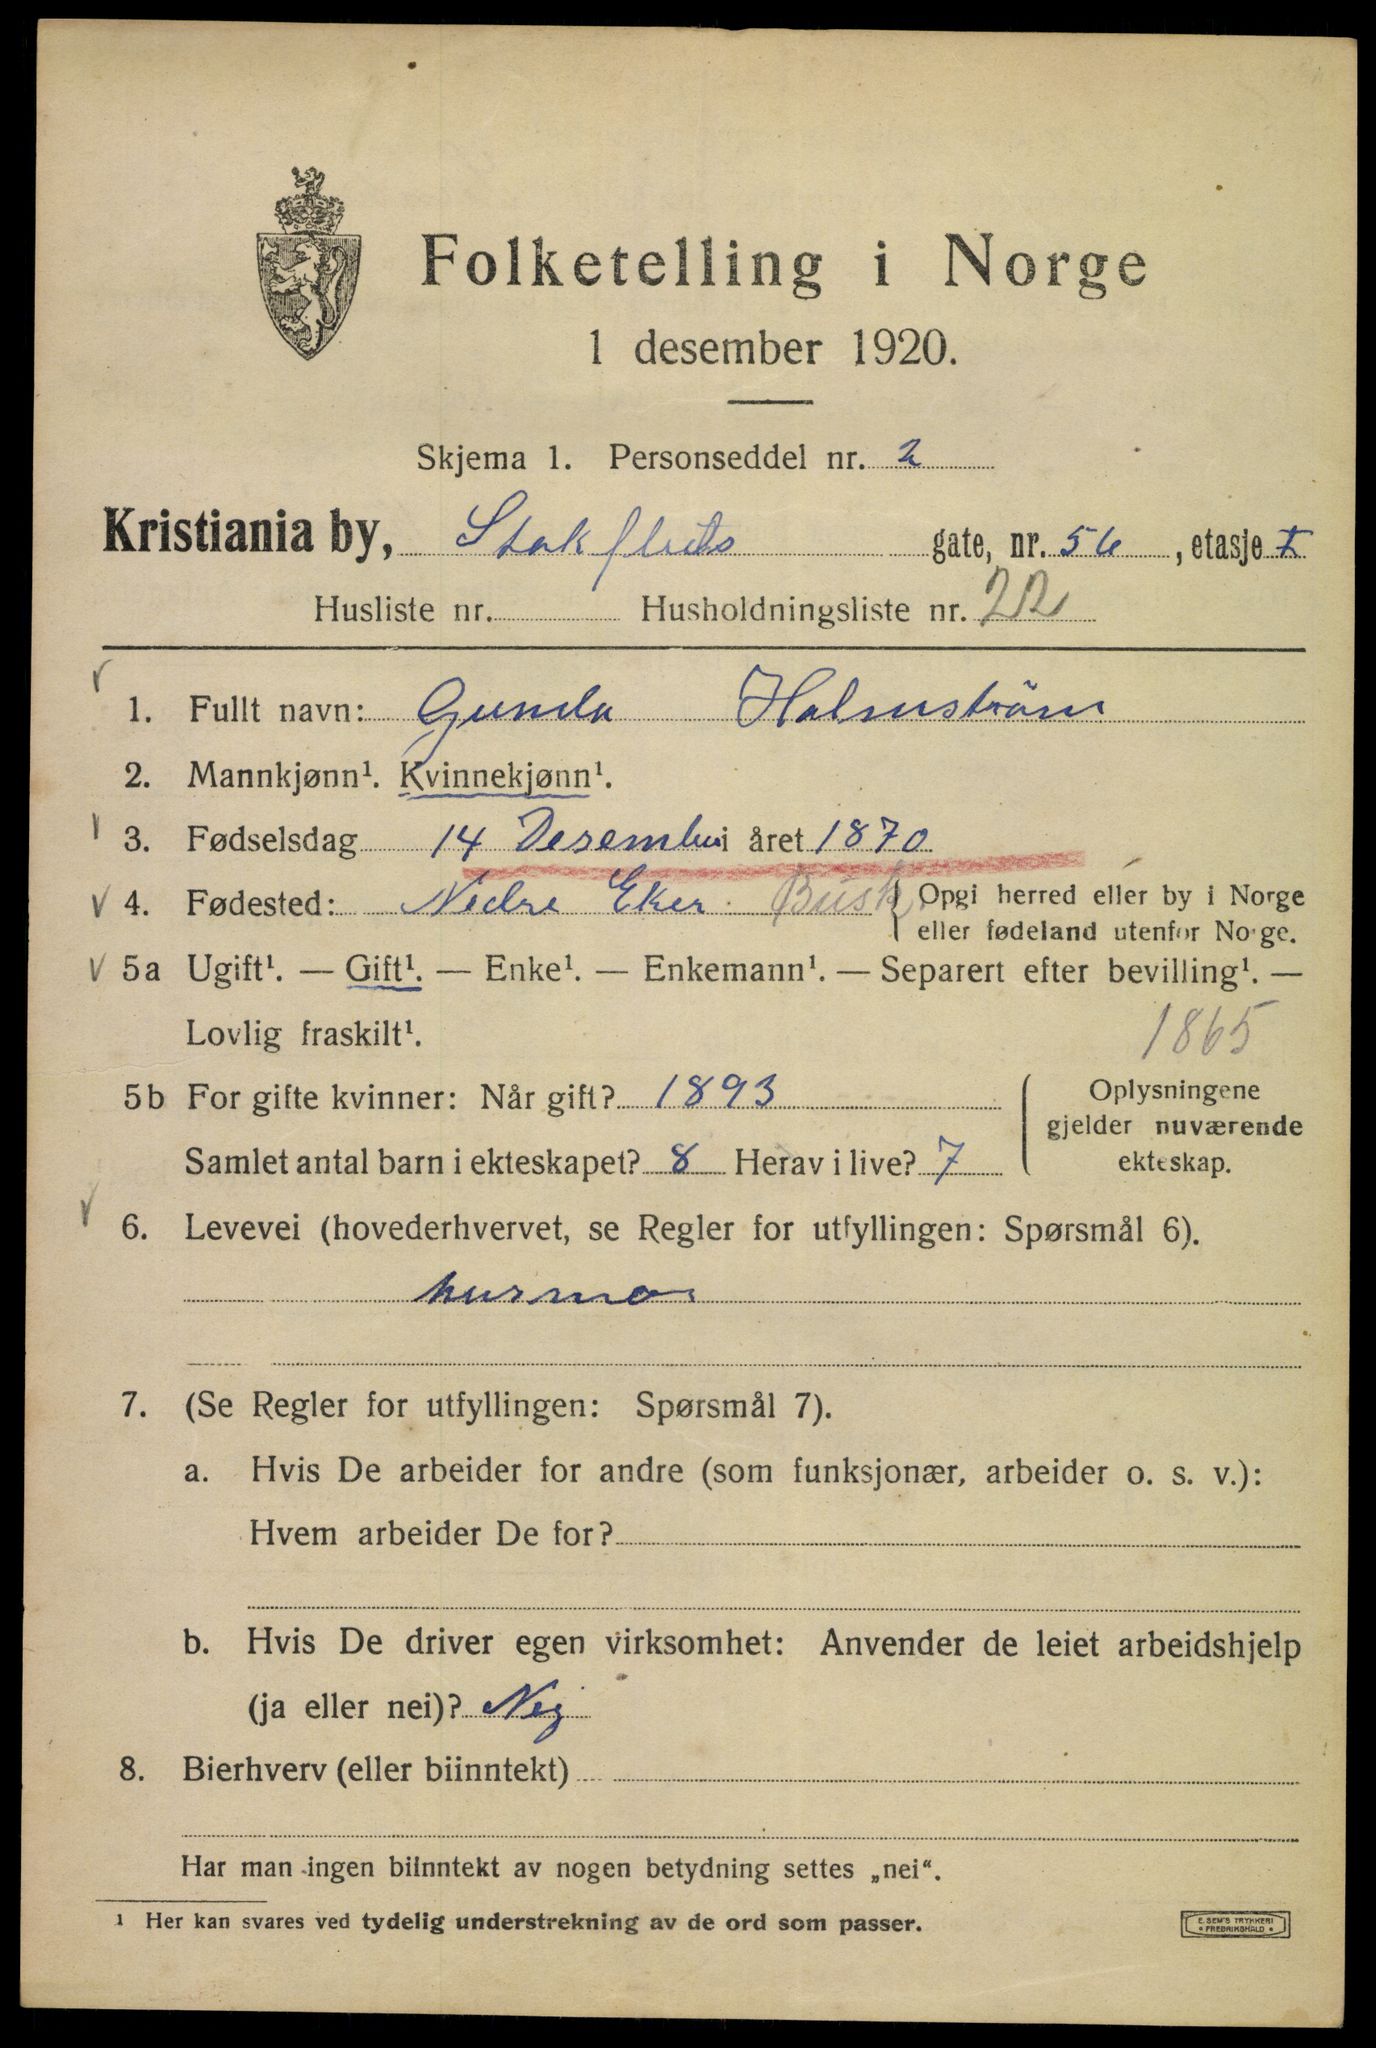 Folketelling i Norge
1 desember 1920.
Skjema 1. Personseddel nr. 2
Kristiania by, Stokfleds gate, nr. 56, etasje I
Husliste nr. Husholdningsliste nr. 22
1. Fullt navn: Gunda Holmström
2. Mannkjønn¹. Kvinnekjønn¹.
3. Fødselsdag 14 Desember i året 1870
4. Fødested: Nedre Eker Busk. Opgi herred eller by i Norge
eller fødeland utenfor Norge.
5a Ugift¹. — Gift¹. — Enke¹. — Enkemann¹. — Separert efter bevilling¹. —
Lovlig fraskilt¹.
1865
5b For gifte kvinner: Når gift? 1893
Samlet antal barn i ekteskapet? 8 Herav i live? 7
Oplysningene
gjelder nuværende
ekteskap.
6. Levevei (hovederhvervet, se Regler for utfyllingen: Spørsmål 6).
husmor
7. (Se Regler for utfyllingen: Spørsmål 7).
a. Hvis De arbeider for andre (som funksjonær, arbeider o. s. v.):
Hvem arbeider De for?
b. Hvis De driver egen virksomhet: Anvender de leiet arbeidshjelp
(ja eller nei)? Nej
8. Bierhverv (eller biinntekt)
Har man ingen biinntekt av nogen betydning settes „nei“.
1 Her kan svares ved tydelig understrekning av de ord som passer.
E. SEM'S TRYKKERI
• FREDRIKSHALD •